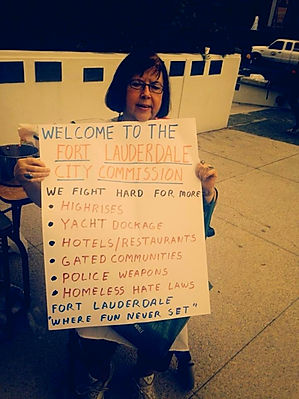 WELCOME TO THE
FORT LAUDERDALE
CITY COMMISSION
WE FIGHT HARD FOR MORE
• HIGHRISES
• YACHT DOCKAGE
• HOTELS/RESTAURANTS
• GATED COMMUNITIES
• POLICE WEAPONS
• HOMELESS HATE LAWS
FORT LAUDERDALE
"WHERE FUN NEVER SET"